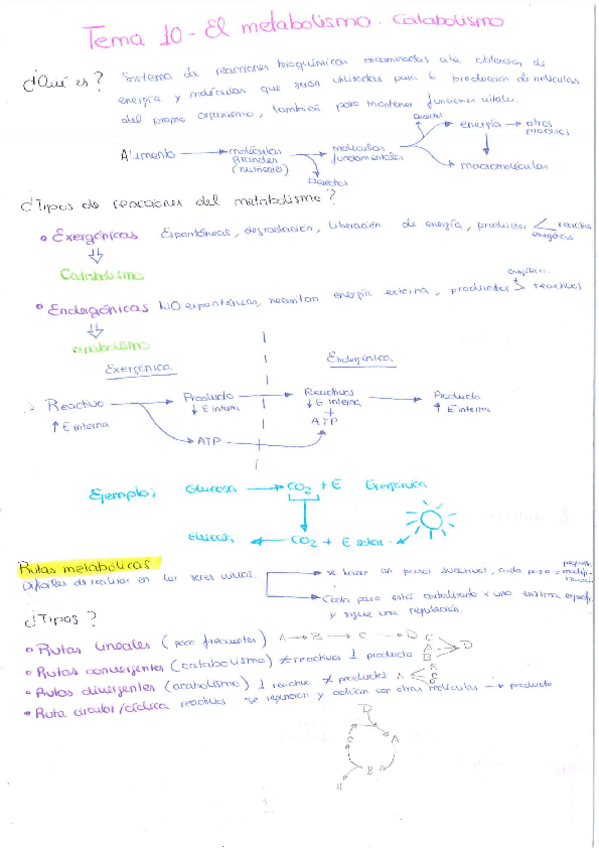 Tema 10 - El metabolismo. Catabolismo
¿Qué es? Sistema de reacciones bioquímicas encaminadas a la obtención de
energía y moléculas que serán utilizadas para la producción de moléculas
del propio organismo, también para mantener funciones vitales.
Alimento → moléculas grandes → moléculas fundamentales → energía → otros procesos
Desechos
Desechos
macromoléculas
¿Tipos de reacciones del metabolismo?
• Exergónicas Espontáneas, degradación, liberación de energía, productos < reactivos
energéticos
Catabolismo
• Endergónicas NO espontáneas, necesitan energía externa, productos > reactivos
anabolismo
Exergónica Endergónica
Reactivo → Producto → Reactivos → Producto
↑ E interna ↓ E interna ↓ E interna ↑ E interna
+
ATP
ATP
Ejemplo: Glucosa → CO2 + E Exergónica
Glucosa ← CO2 + E solar
Rutas metabólicas
Difíciles de realizar en los seres vivos. se hacen en pasos sucesivos, cada paso = pequeña
Cada paso está controlado x una enzima específ.
y sigue una regulación.
¿Tipos?
• Rutas lineales (poco frecuentes) A → B → C → D
• Rutas convergentes (catabolismo) ≠ reactivos 1 producto C A B D
• Rutas divergentes (anabolismo) 1 reactivo ≠ productos A B C D
• Ruta circular/cíclica reactivos se repiten y actúan con otras moléculas → producto
D
C A
B
H